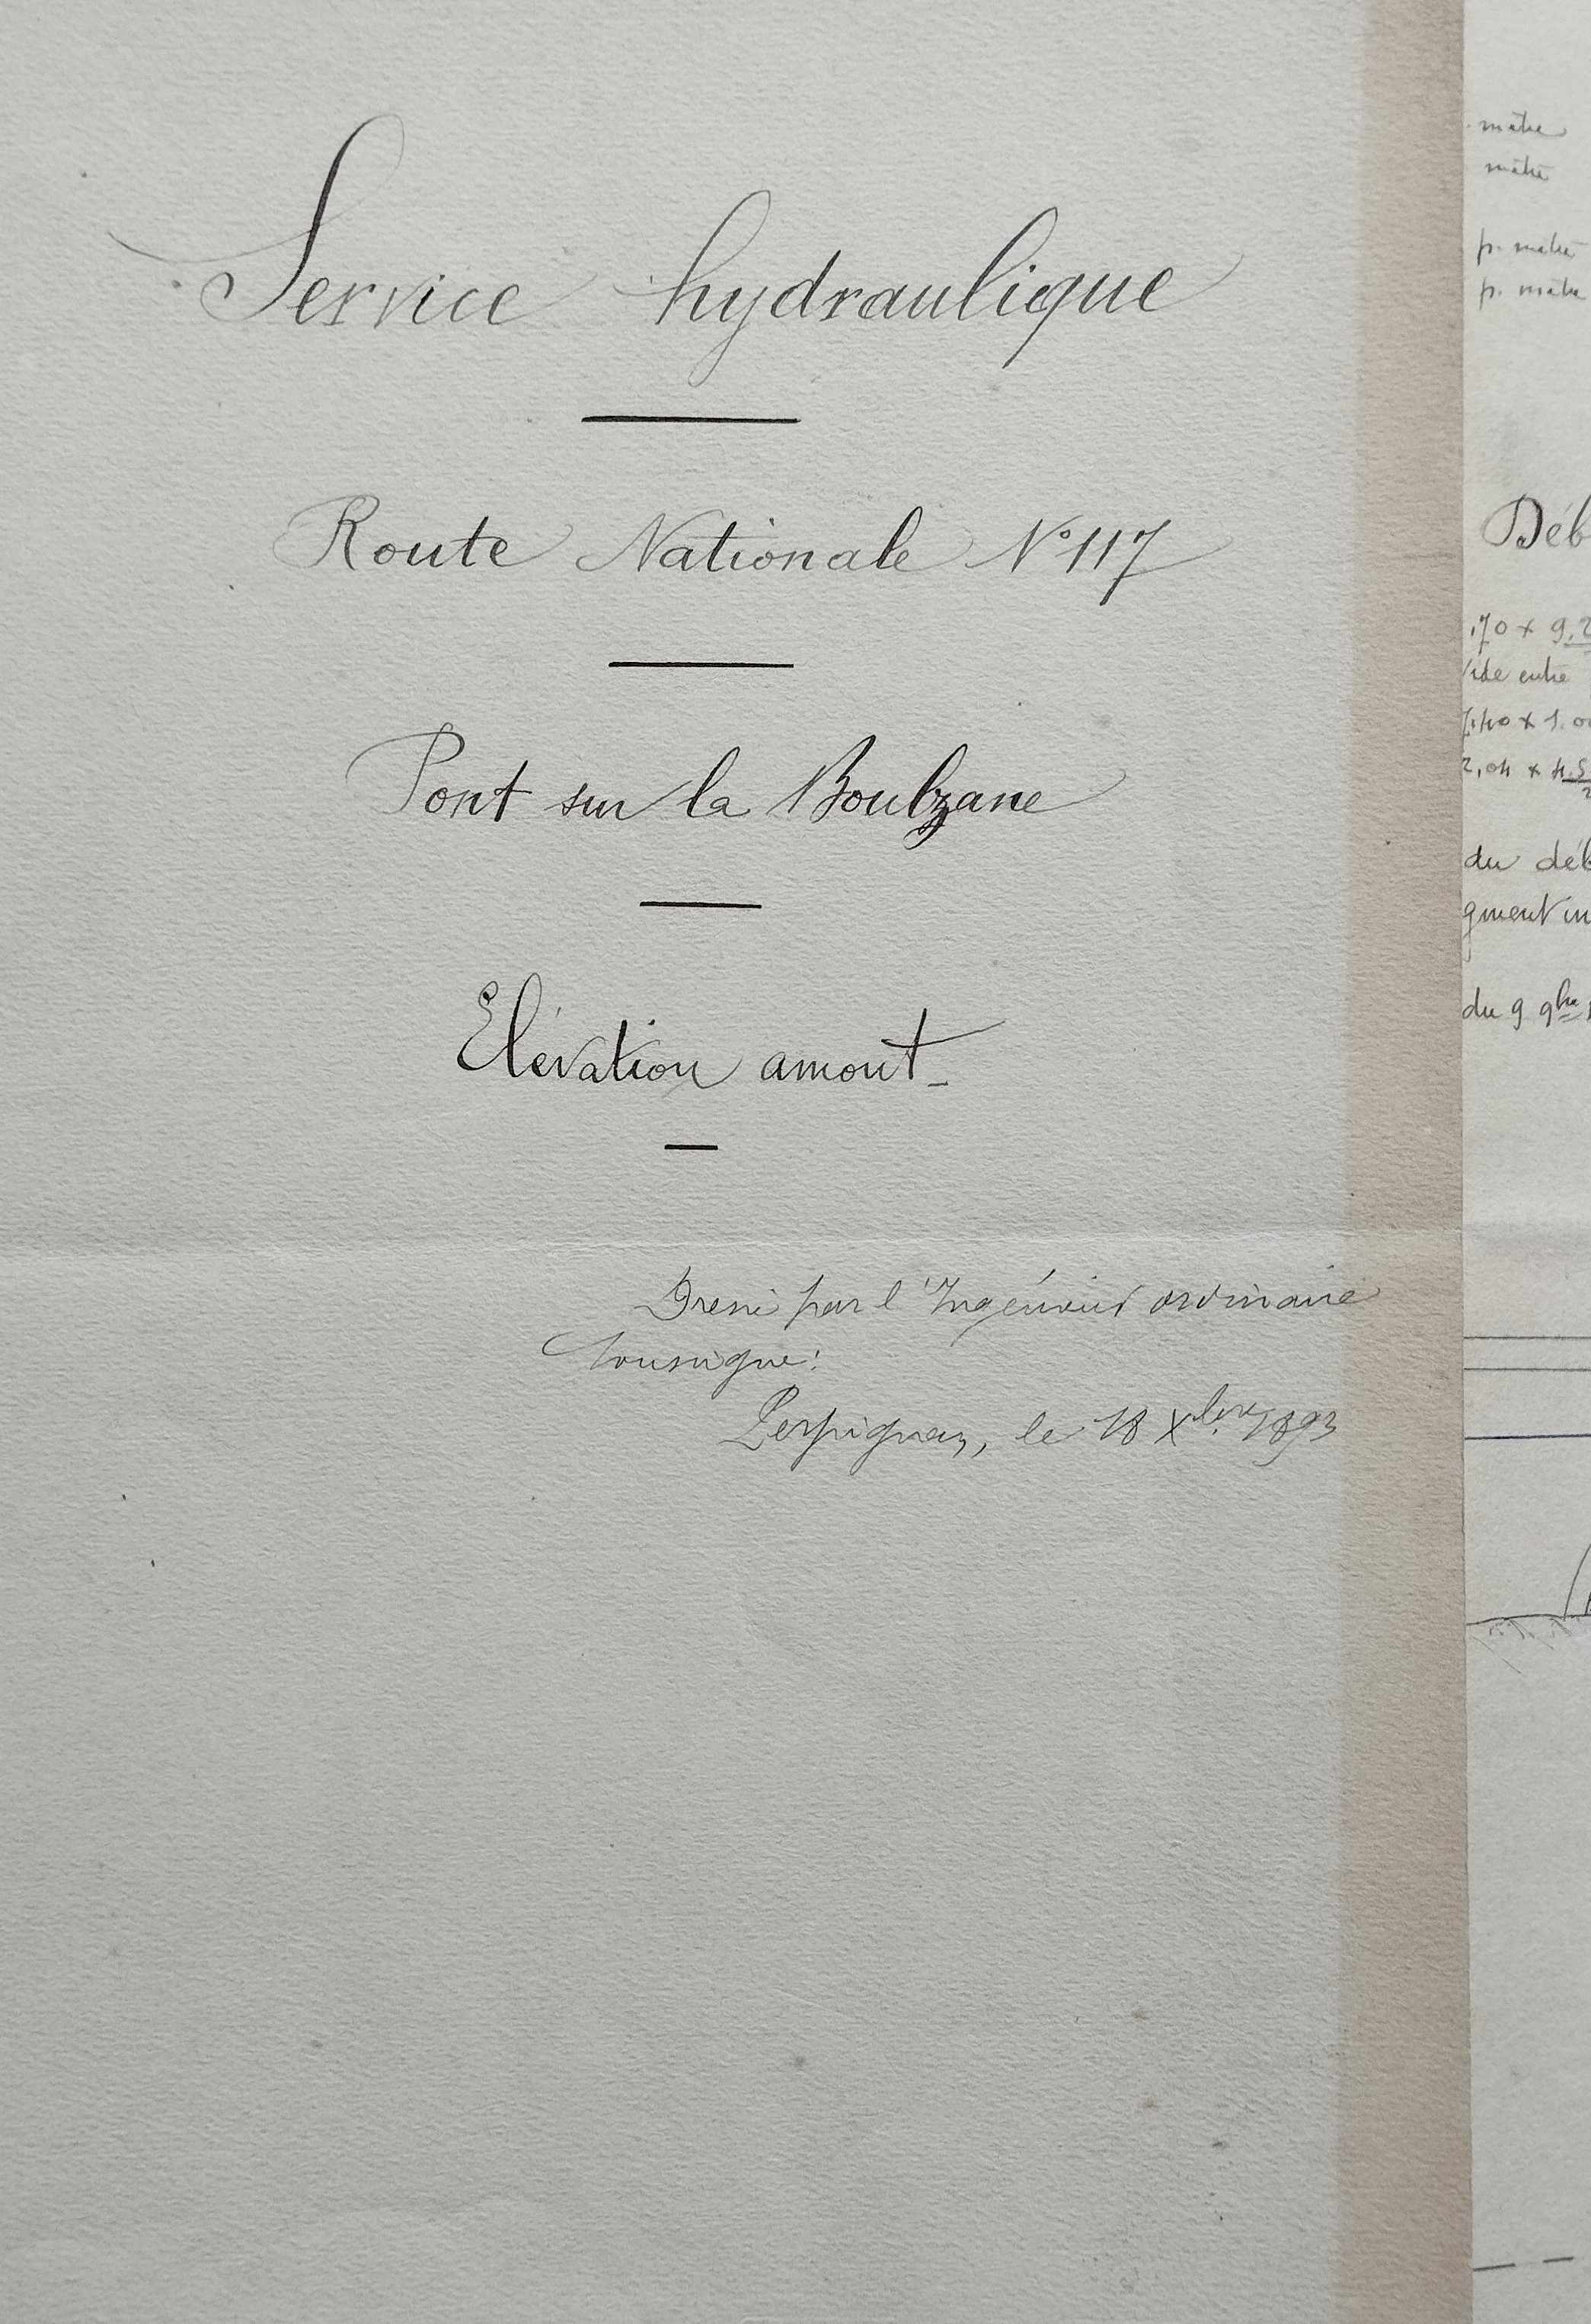 Service hydraulique
Route Nationale N° 117
Pont sur la Boulzane
Elévation amont_
Dressé par l'Ingénieur ordinaire
soussigné:
Perpignan, le 18 Xbre 1893
mètre
mètre
p. mètre
p. mètre
Déb
,70 x 9,2
Vide entre
7,40 x 1.0
2,04 x 4.5
2
du déb
gment in
du 9 9bre